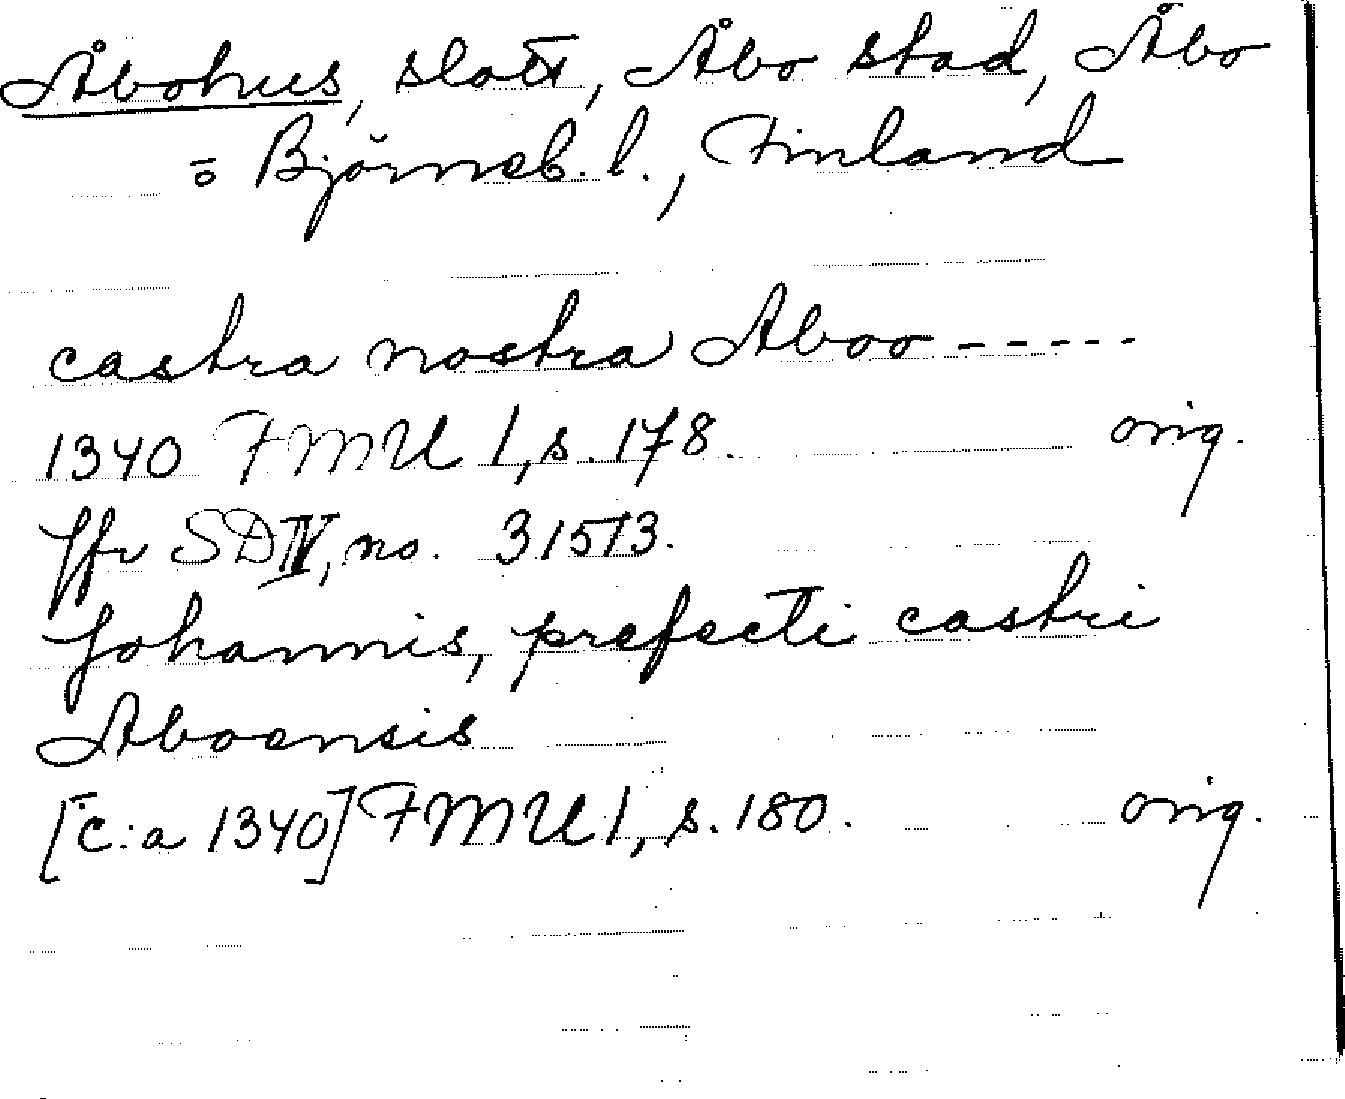 Åbohus, slott, Åbo stad, Åbo
o Björneb. l., Finland
castra nostra Aboo -----
1340 FMU 1, s. 178. orig.
Jfr SD IV, no. 31513.
Johannis, prefecti castri
Aboensis
[c:a 1340] FMU 1, s. 180. orig.